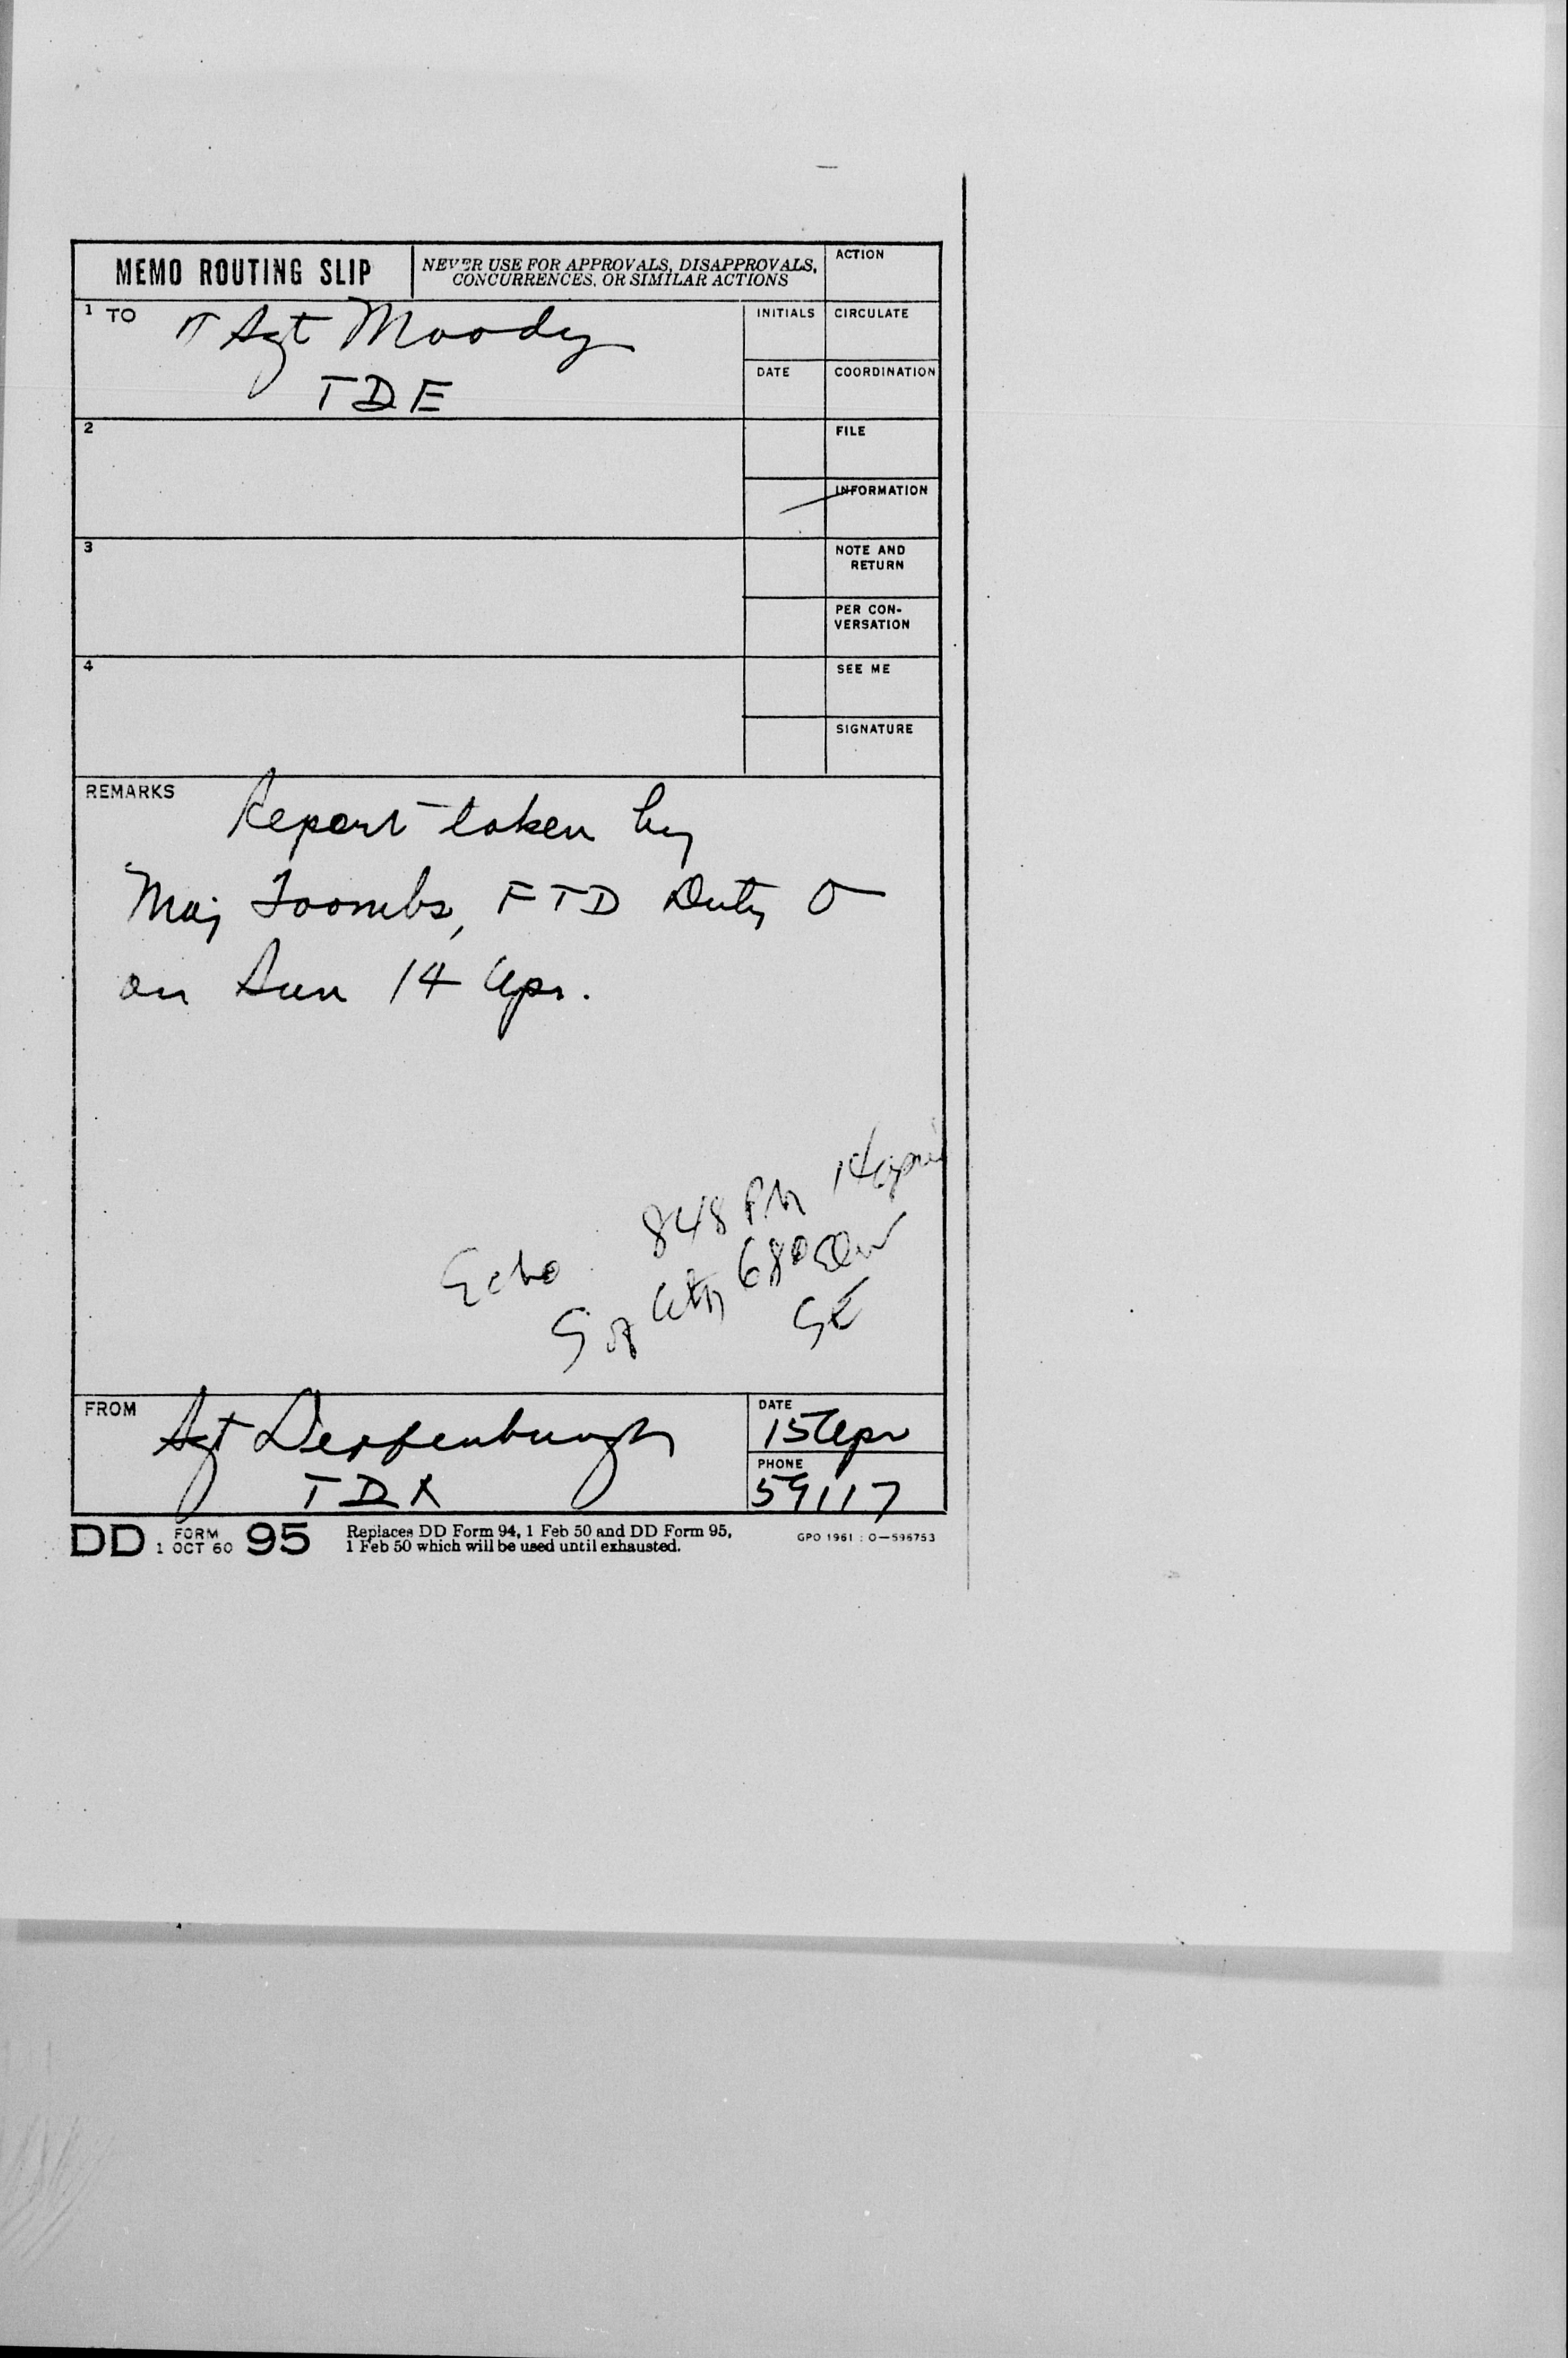 MEMO ROUTING SLIP
NEVER USE FOR APPROVALS, DISAPPROVALS,
CONCURRENCES, OR SIMILAR ACTIONS
ACTION
1 TO
T Sgt Moody
TDE
INITIALS
CIRCULATE
DATE
COORDINATION
2
FILE
INFORMATION
3
NOTE AND
RETURN
PER CON-
VERSATION
4
SEE ME
SIGNATURE
REMARKS
Report taken by
Maj Toombs, FTD Duty O
on Sun 14 Apr.
848 PM 14 april
Echo
68°
SE
FROM
Sgt
TDX
DATE
15 Apr
PHONE
59117
DD FORM 95
1 OCT 60
Replaces DD Form 94, 1 Feb 50 and DD Form 95,
1 Feb 50 which will be used until exhausted.
GPO 1961 : O—596753